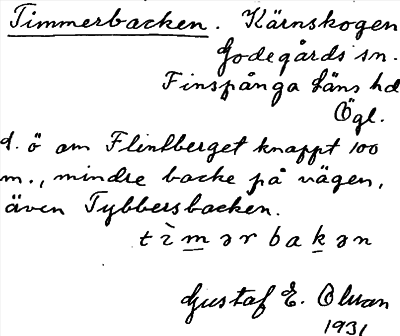 Timmerbacken. Kärnskogen
Godegårds sn.
Finspånga läns hd
Ögl.
d. ö om Flintberget knappt 100
m., mindre backe på vägen,
även Tybbersbacken.
tìmərbakən
Gustaf E. Olsson
1931